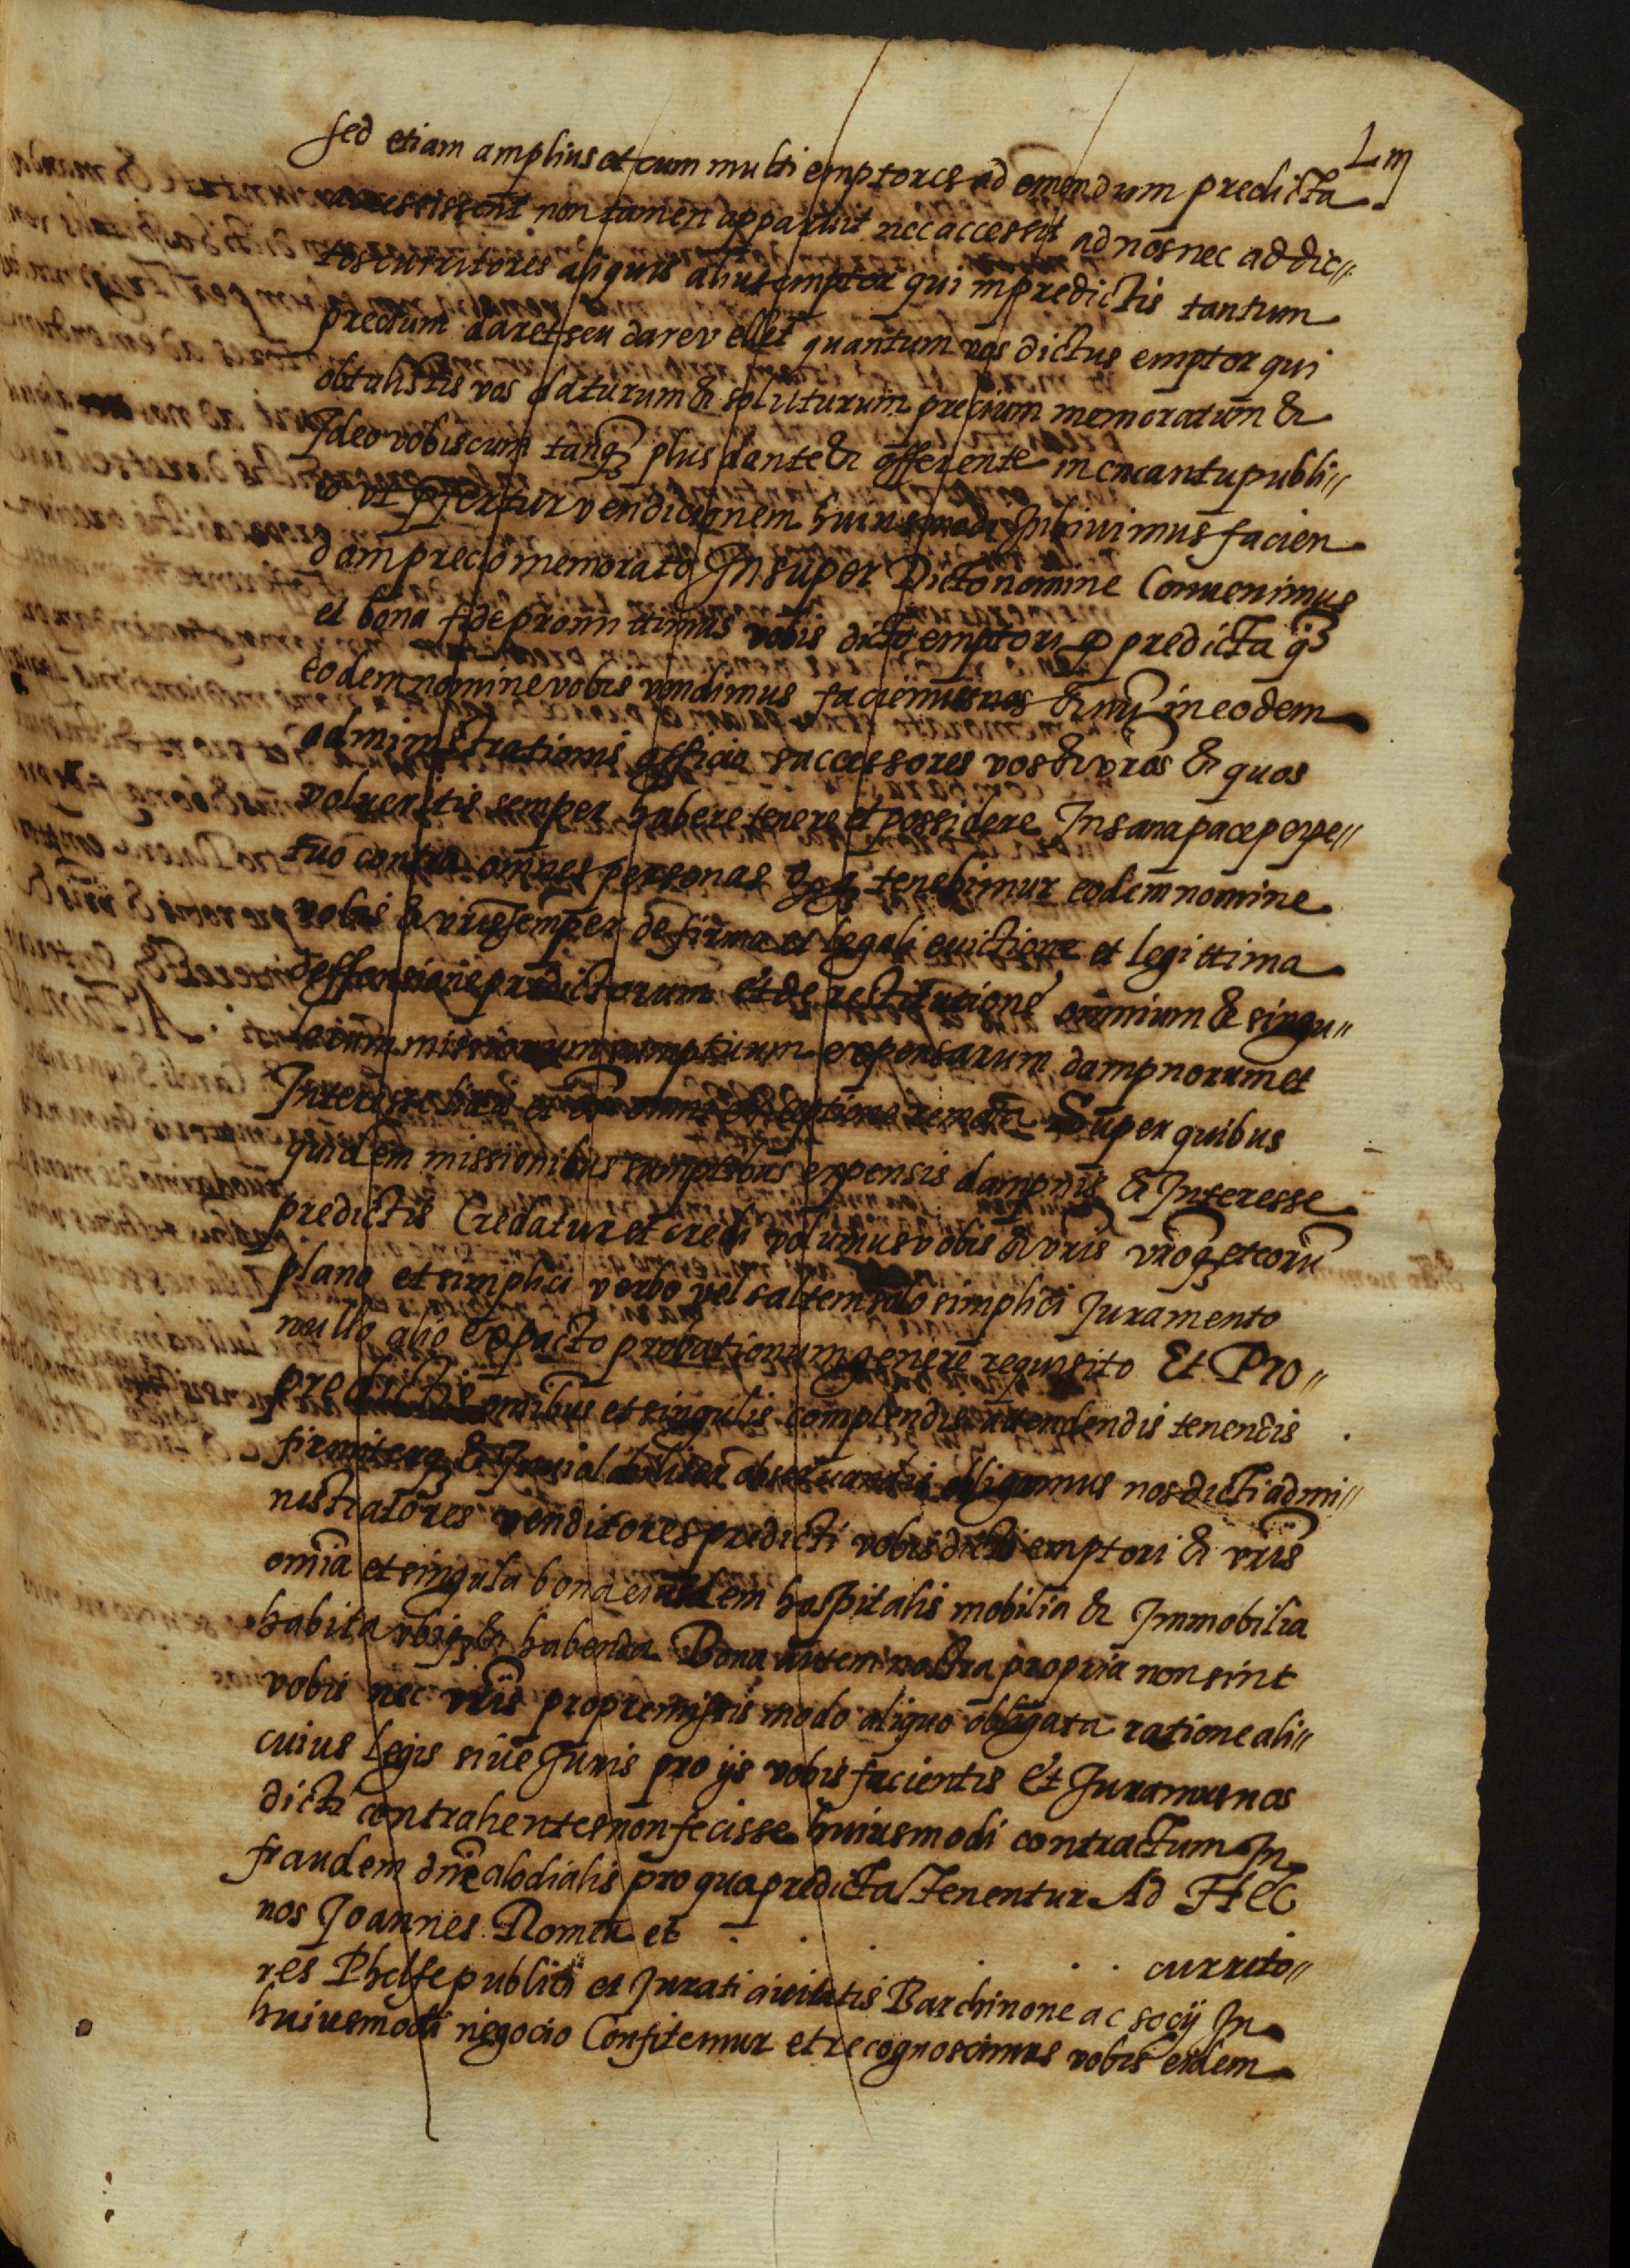 Lm
sed etiam amplius et cum multi emptores ad emendum predicta
accessissent non tamen apparuit nec accessit ad nos nec ad dic//
tos curritores aliquis alius emptor qui in predictis tantum
precium daret seu dare vellet quantum vos dictus emptor qui
obtulistis vos daturum & soluturum precium memoratum &
Ideo vobiscum tanqꝫ plus dante & offerente in encantu publi//
co ut pfertur vendicionem huiusmodi Inhivimus facien
dam precio memorato Insuper Dicto nomine Convenimus
et bona fide promittimus vobis dicto emptori ꝙ predicta q̃
eodem nomine vobis vendimus faciemus nos & nrĩ in eodem
administrationis officio successores vos & vrõs & quos
volueritis semper habere tenere et possidere In sana pace perpe//
tuo contra omnes personas tenebimur eodem nomine
vobis & vrĩs semper de firma et legali evictione et legittima
deffensione predictorum et de restitutione omnium & singu//
lorum missionum sumptuum expensarum dampnorum et
Interesse litis et Super quibus
quidem missionibus sumptibus expensis dampnis & Interesse
predictis Credatur et credi volumus vobis & vrĩs vrõqꝫ et eorũ
plano et simplici verbo vel saltem solo simplici Juramento
nullo alio expacto probationum genere requisito Et Pro//
predictis omĩbus et singulis complendis attendendis tenendis
firmiterqꝫ & Inviolabiliter observandis obligamus nos dicti admi//
nistratores venditores predicti vobis dicto emptori & vrĩs
omĩa et singula bona eiusdem hospitalis mobilia & Immobilia
habita ubiqꝫ & habenda Bona autem nostra propria non sint
vobis nec vrĩs pro premissis modo aliquo obligata ratione ali//
cuius Legis sive Juris pro ijs vobis facientis Et Juramus nos
dicti contrahentes non fecisse huiusmodi contractum In
fraudem dnĩe alodialis pro qua predicta Tenentur Ad Hec
nos Joannes Romeu et . . . . . currito//
res Phelfe publici et Jurati civitatis Barchinone ac socij In
huiusmodi negocio Confitemur et recognoscimus vobis eidem